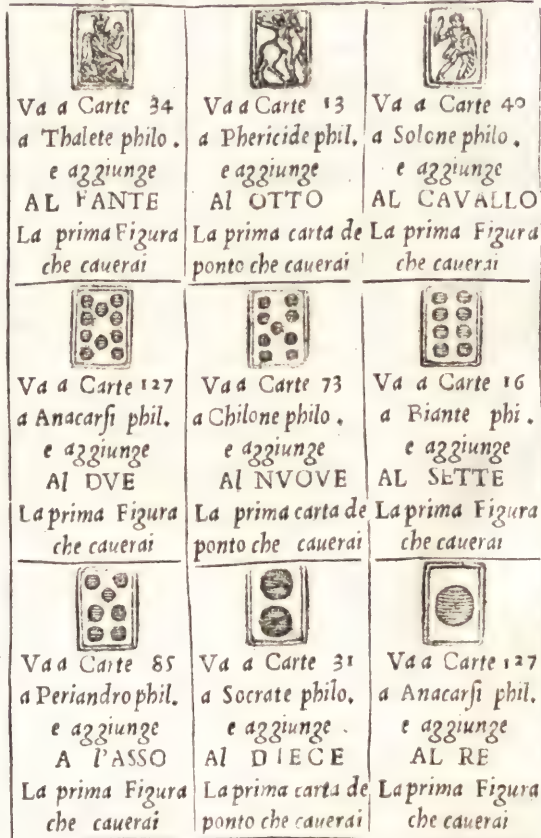 Va a Carte 34
a Thalete philo.
e aggiunge
AL FANTE
La prima Figura
che cauerai
Va a Carte 13
a Phericide phil.
e aggiunge
Al OTTO
La prima carta de
ponto che cauerai
Va a Carte 40
a Solone philo.
e aggiunge
AL CAVALLO
La prima Figura
che cauerai
Va a Carte 127
a Anacarſi phil.
e aggiunge
Al DVE
La prima Figura
che cauerai
Va a Carte 73
a Chilone philo.
e aggiunge
Al NVOVE
La prima carta de
ponto che cauerai
Va a Carte 16
a Biante phi.
e aggiunge
AL SETTE
La prima Figura
che cauerai
Va a Carte 85
a Periandro phil.
e aggiunge
A l'ASSO
La prima Figura
che cauerai
Va a Carte 31
a Socrate philo.
e aggiunge.
Al DIECE
La prima carta de
ponto che cauerai
Va a Carte 127
a Anacarſi phil.
e aggiunge
AL RE
La prima Figura
che cauerai